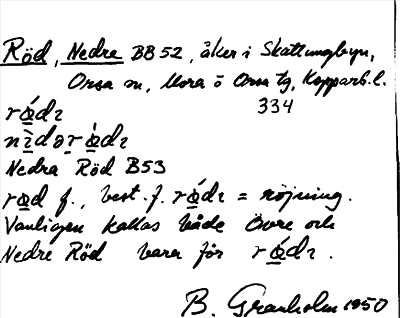 Röd, Nedre BB 52, åker i Skattungbyn,
Orsa sn, Mora ö Orsa tg, Kopparb. l.
334
rå̱dɿ
nìdər rà̱dɿ
Nedra Röd B53
ra̱d f., best. f. rá̱dɿ = röjning.
Vanligen kallas både Övre och
Nedre Röd bara för rá̱dɿ.
B. Granholm 1950